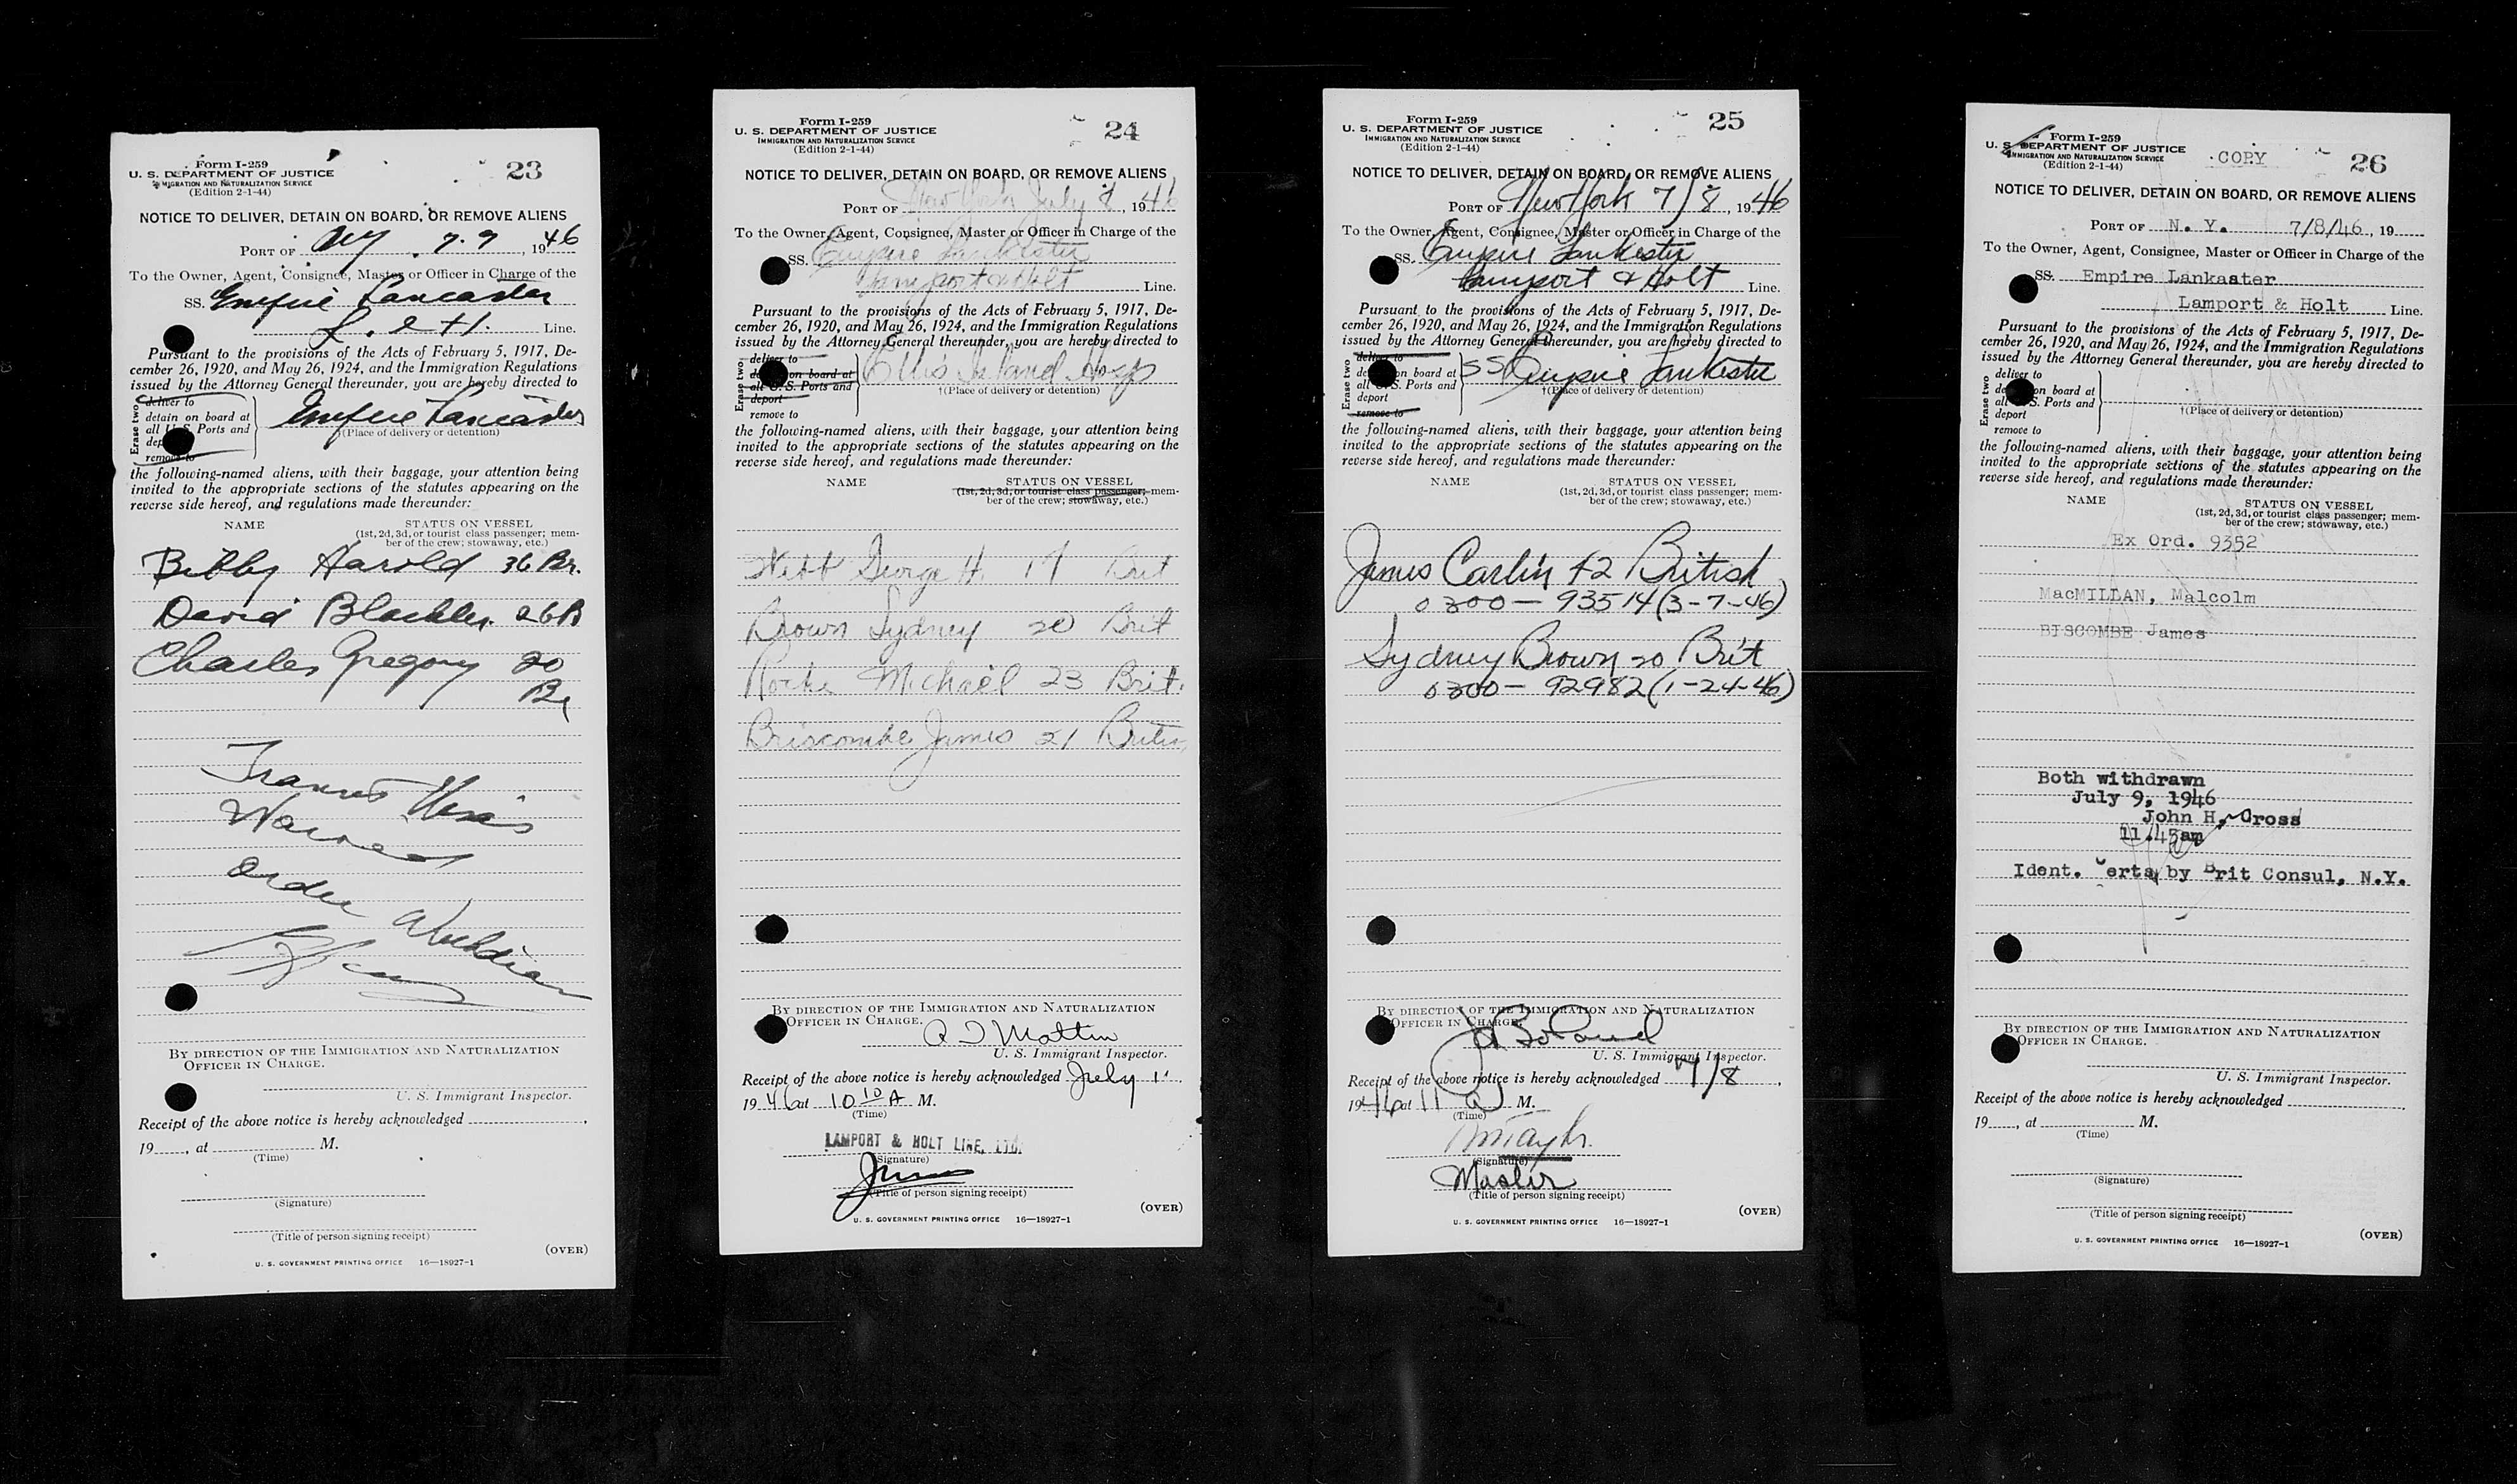 Form I-259
U. S. DEPARTMENT OF JUSTICE
IMMIGRATION AND NATURALIZATION SERVICE
(Edition 2-1-44)
23
NOTICE TO DELIVER, DETAIN ON BOARD, OR REMOVE ALIENS
PORT OF NY 7-9, 1946
To the Owner, Agent, Consignee, Master or Officer in Charge of the
SS. Empire Lancaster
L. & H. Line.
Pursuant to the provisions of the Acts of February 5, 1917, De-
cember 26, 1920, and May 26, 1924, and the Immigration Regulations
issued by the Attorney General thereunder, you are hereby directed to
Erase two
deliver to
detain on board at
all U. S. Ports and
dep
remove to
Empire Lancaster
†(Place of delivery or detention)
the following-named aliens, with their baggage, your attention being
invited to the appropriate sections of the statutes appearing on the
reverse side hereof, and regulations made thereunder:
NAME STATUS ON VESSEL
(1st, 2d, 3d, or tourist class passenger; mem-
ber of the crew; stowaway, etc.)
Bibby Harold 36 Br.
David Blackley 26 B
Charles Gregory 20
Br
Transit Visas
Waived
Order
BY DIRECTION OF THE IMMIGRATION AND NATURALIZATION
OFFICER IN CHARGE.
U. S. Immigrant Inspector.
Receipt of the above notice is hereby acknowledged
19, at M.
(Time)
(Signature)
(Title of person signing receipt)
(OVER)
U. S. GOVERNMENT PRINTING OFFICE 16—18927-1
Form I-259
U. S. DEPARTMENT OF JUSTICE
IMMIGRATION AND NATURALIZATION SERVICE
(Edition 2-1-44)
24
NOTICE TO DELIVER, DETAIN ON BOARD, OR REMOVE ALIENS
PORT OF New York July 8, 1946
To the Owner, Agent, Consignee, Master or Officer in Charge of the
SS. Empire Lankester
Lamport & Holt Line.
Pursuant to the provisions of the Acts of February 5, 1917, De-
cember 26, 1920, and May 26, 1924, and the Immigration Regulations
issued by the Attorney General thereunder, you are hereby directed to
Erase two
deliver to
de on board at
all U. S. Ports and
deport
remove to
Ellis Island Hosp
†(Place of delivery or detention)
the following-named aliens, with their baggage, your attention being
invited to the appropriate sections of the statutes appearing on the
reverse side hereof, and regulations made thereunder:
NAME STATUS ON VESSEL
(1st, 2d, 3d, or tourist class passenger; mem-
ber of the crew; stowaway, etc.)
George H. 19 Brit
Brown Sydney 20 Brit
Roche Michael 23 Brit.
Briscombe James 21 British
BY DIRECTION OF THE IMMIGRATION AND NATURALIZATION
OFFICER IN CHARGE.
U. S. Immigrant Inspector.
Receipt of the above notice is hereby acknowledged July
1946 at 10 10 A M.
(Time)
LAMPORT & HOLT LINE, LTD.
(Signature)
(Title of person signing receipt)
(OVER)
U. S. GOVERNMENT PRINTING OFFICE 16—18927-1
Form I-259
U. S. DEPARTMENT OF JUSTICE
IMMIGRATION AND NATURALIZATION SERVICE
(Edition 2-1-44)
25
NOTICE TO DELIVER, DETAIN ON BOARD, OR REMOVE ALIENS
PORT OF New York 7/8, 1946
To the Owner, Agent, Consignee, Master or Officer in Charge of the
SS. Empire Lankester
Lamport & Holt Line.
Pursuant to the provisions of the Acts of February 5, 1917, De-
cember 26, 1920, and May 26, 1924, and the Immigration Regulations
issued by the Attorney General thereunder, you are hereby directed to
Erase two
deliver to
de on board at
all S. Ports and
deport
remove to
SS Empire Lankester
†(Place of delivery or detention)
the following-named aliens, with their baggage, your attention being
invited to the appropriate sections of the statutes appearing on the
reverse side hereof, and regulations made thereunder:
NAME STATUS ON VESSEL
(1st, 2d, 3d, or tourist class passenger; mem-
ber of the crew; stowaway, etc.)
James Carlin 42 British
0300 — 93514 (3-7-46)
Sydney Brown 20 Brit
0300 — 92982 (1-24-46)
BY DIRECTION OF THE IMMIGRATION AND NATURALIZATION
OFFICER IN CHARGE.
U. S. Immigrant Inspector.
Receipt of the above notice is hereby acknowledged 7/8,
1946 at 11 a M.
(Time)
(Signature)
Master
(Title of person signing receipt)
(OVER)
U. S. GOVERNMENT PRINTING OFFICE 16—18927-1
Form I-259
U. S. DEPARTMENT OF JUSTICE
IMMIGRATION AND NATURALIZATION SERVICE
(Edition 2-1-44)
COPY
26
NOTICE TO DELIVER, DETAIN ON BOARD, OR REMOVE ALIENS
PORT OF N. Y. 7/8/46, 19
To the Owner, Agent, Consignee, Master or Officer in Charge of the
SS. Empire Lankaster
Lamport & Holt Line.
Pursuant to the provisions of the Acts of February 5, 1917, De-
cember 26, 1920, and May 26, 1924, and the Immigration Regulations
issued by the Attorney General thereunder, you are hereby directed to
Erase two
deliver to
de on board at
all S. Ports and
deport
remove to
†(Place of delivery or detention)
the following-named aliens, with their baggage, your attention being
invited to the appropriate sections of the statutes appearing on the
reverse side hereof, and regulations made thereunder:
NAME STATUS ON VESSEL
(1st, 2d, 3d, or tourist class passenger; mem-
ber of the crew; stowaway, etc.)
Ex Ord. 9352
MacMILLAN, Malcolm
BISCOMBE James
Both withdrawn
July 9, 1946
John H. Cross
11.45am
Ident. Certs by Brit Consul, N.Y.
BY DIRECTION OF THE IMMIGRATION AND NATURALIZATION
OFFICER IN CHARGE.
U. S. Immigrant Inspector.
Receipt of the above notice is hereby acknowledged
19, at M.
(Time)
(Signature)
(Title of person signing receipt)
(OVER)
U. S. GOVERNMENT PRINTING OFFICE 16—18927-1